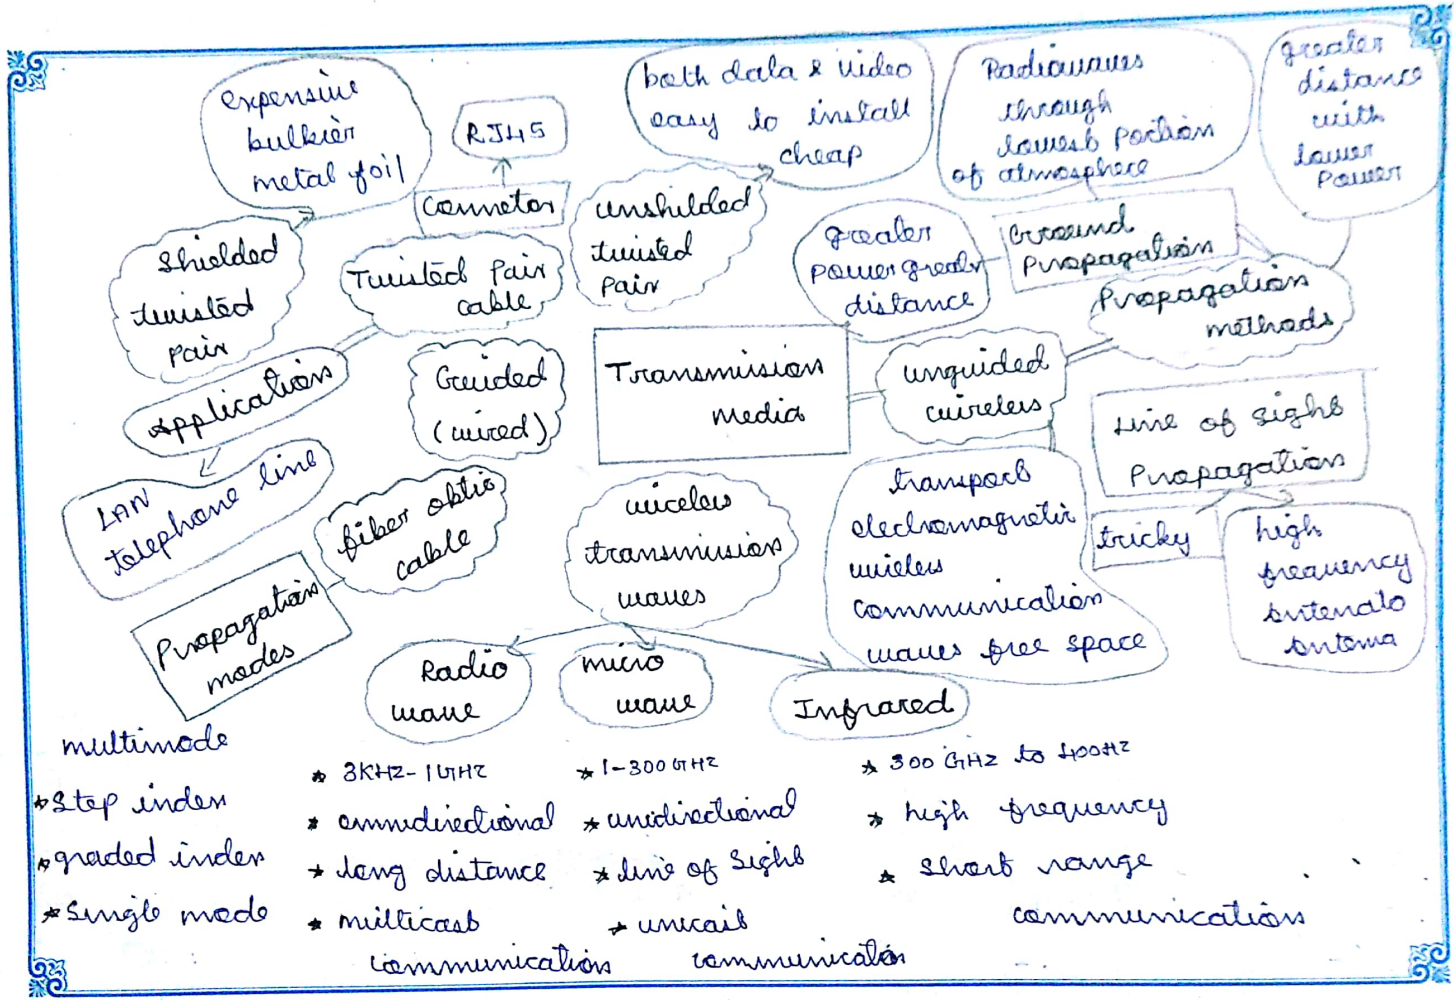 expensive
bulkier
metal foil
RJ45
Connetor
both data & video
easy to install
cheap
Radiowaves
through
lowest Portion
of atmosphere
greater
distance
with
lower
Power
Shielded
twisted
Pair
Twisted Pair
cable
unshilded
twisted
Pair
greater
Power greatr
distance
Ground
Propagation
Propagation
methods
Application
Guided
(wired)
Transmission
Media
unguided
wireless
Line of Sight
Propagation
LAN
telephone line
fiber obtic
cable
wireless
transmission
waves
transport
electromagnetic
wireless
communication
waves free space
tricky
high
frequency
Propagation
modes
Radio
wave
micro
wave
Infrared
multimode
* Step index
* graded index
* Single mode
* 3KHZ-1GHZ
* omnidirectional
* long distance
* multicast
communication
* 1-300GHZ
* unidirectional
* line of Sight
* unicast
communication
* 300 GHZ to 400HZ
* high frequency
* Short range
communication